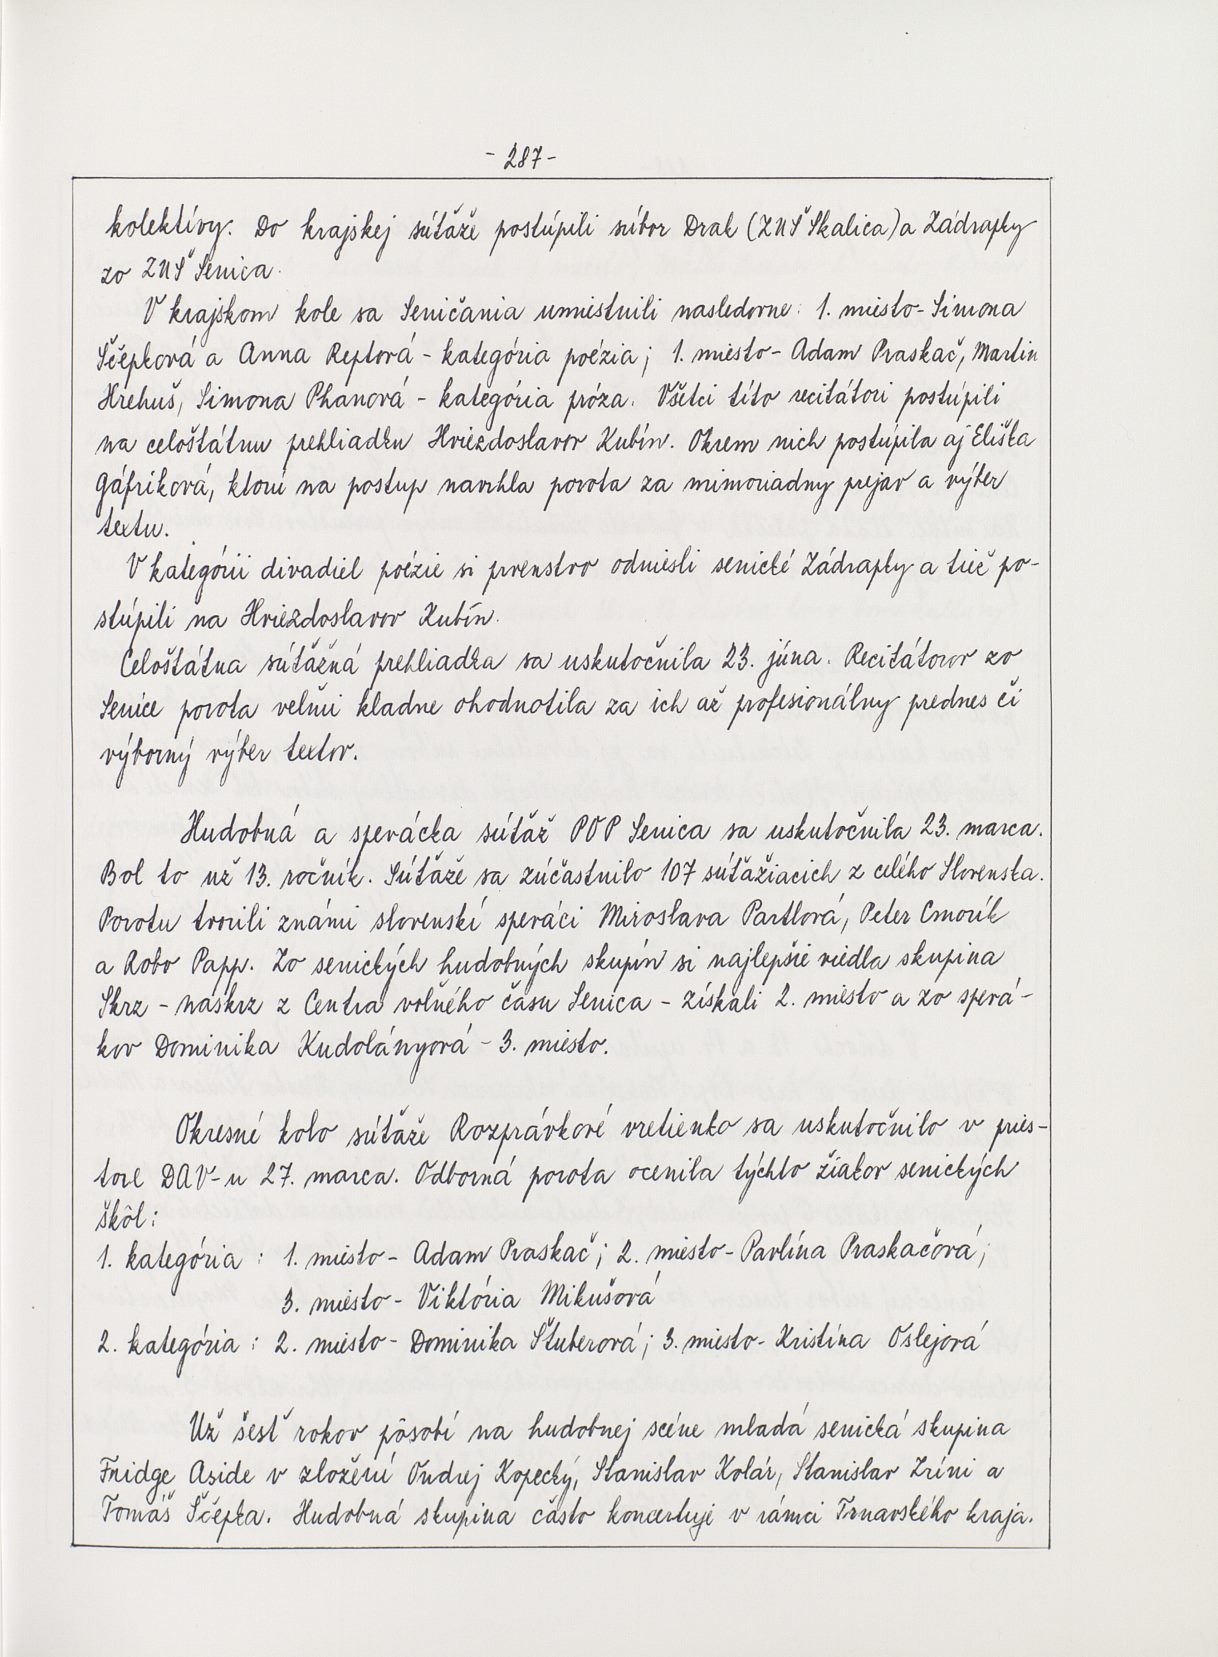 - 287 -
kolektívy. Do krajskej súťaže postúpili súbor Drak (ZUŠ Skalica) a Zádrapky
zo ZUŠ Senica.
V krajskom kole sa Seničania umiestnili nasledovne: 1. miesto - Simona
Ščepková a Anna Reptová - kategória poézia; 1. miesto - Adam Praskač, Martin
Hrehuš, Simona Phanová - kategória próza. Všetci títo recitátori postúpili
na celoštátnu prehliadku Hviezdoslavov Kubín. Okrem nich postúpila aj Eliška
Gáfriková, ktorú na postup navrhla porota za mimoriadny prejav a výber
textu.
V kategórii divadiel poézie si prvenstvo odniesli senické Zádrapky a tiež po-
stúpili na Hviezdoslavov Kubín.
Celoštátna súťažná prehliadka sa uskutočnila 23. júna. Recitátorov zo
Senice porota veľmi kladne ohodnotila za ich až profesionálny prednes či
výborný výber textov.
Hudobná a spevácka súťaž POP Senica sa uskutočnila 23. marca.
Bol to už 13. ročník. Súťaže sa zúčastnilo 107 súťažiacich z celého Slovenska.
Porotu tvorili známi slovenskí speváci Miroslava Partlová, Peter Cmorík
a Robo Papp. Zo senických hudobných skupín si najlepšie viedla skupina
Skrz - naskrz z Centra voľného času Senica - získali 2. miesto a zo spevá-
kov Dominika Kudolányová - 3. miesto.
Okresné kolo súťaže Rozprávkové vretienko sa uskutočnilo v pries-
tore DAV-u 27. marca. Odborná porota ocenila týchto žiakov senických
škôl:
1. kategória : 1. miesto - Adam Praskač; 2. miesto - Pavlína Praskačová;
3. miesto - Viktória Mikušová
2. kategória : 2. miesto - Dominika Štuberová; 3. miesto - Kristína Oslejová
Už šesť rokov pôsobí na hudobnej scéne mladá senická skupina
Fridge Aside v zložení Ondrej Kopecký, Stanislav Kolár, Stanislav Zríni a
Tomáš Ščepka. Hudobná skupina často koncertuje v rámci Trnavského kraja.